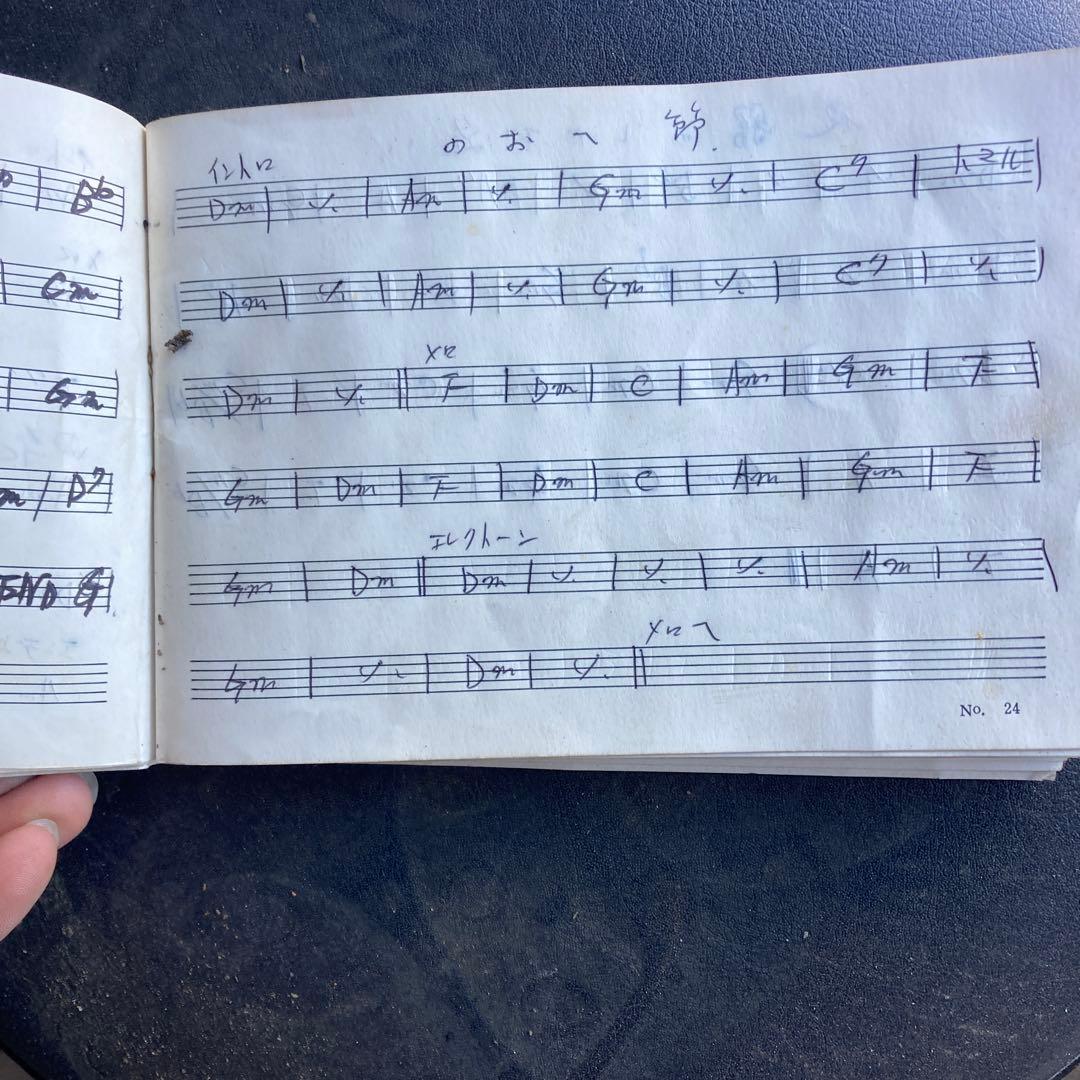 のおへ節.
イントロ
Dm | ٪ | Am | ٪ | Gm | ٪ | C7 |
Dm | ٪ | Am | ٪ | Gm | ٪ | C7 | ٪
メロ
Dm | ٪ || F | Dm | C | Am | Gm | F
Gm | Dm | F | Dm | C | Am | Gm | F
エレクトーン
Gm | Dm || Dm | ٪ | ٪ | ٪ | Am | ٪
メロへ
Gm | ٪ | Dm | ٪ ||
No. 24
Gm
Gm
D7
END G